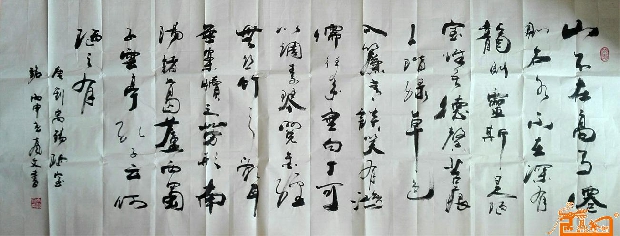 山不在高有僊
則名水不在深有
龍則靈斯是陋
室惟吾德馨苔痕
上階綠草色
入簾青談笑有鴻
儒往來無白丁可
以調素琴閱金經
無絲竹之亂耳
無案牘之勞形南
陽諸葛廬西蜀
子雲亭孔子云何
陋之有
唐劉禹錫陋室
銘 丙申